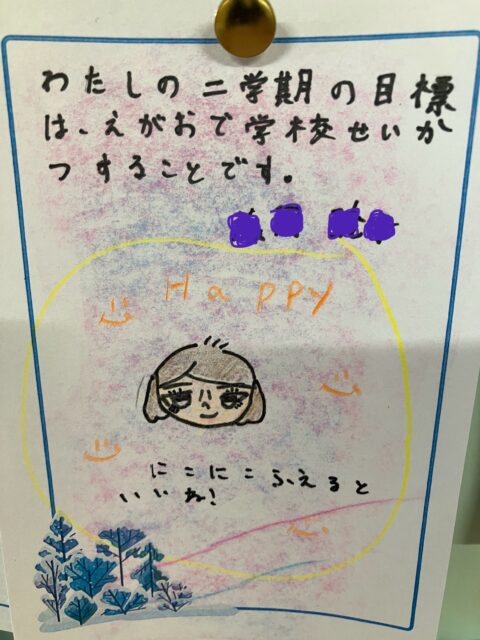 わたしの二学期の目標
は、えがおで学校せいか
つすることです。
Happy
にこにこふえると
いいね!